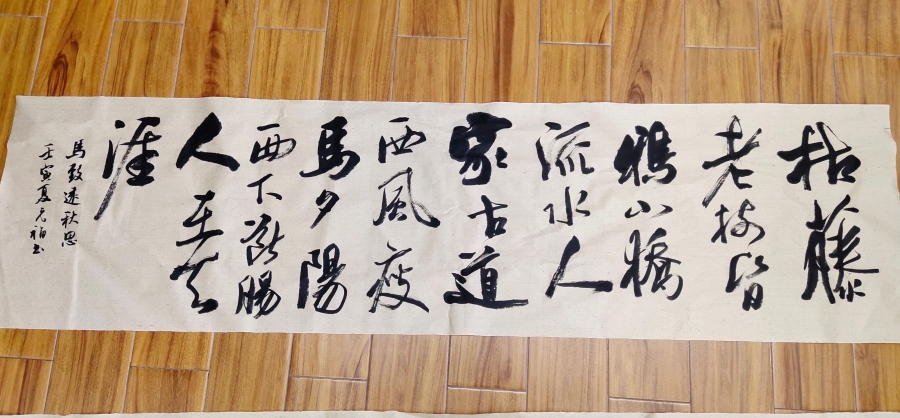 枯藤
老树昏
鴉小橋
流水人
家古道
西風瘦
馬夕陽
西下斷腸
人在天
涯
馬致遠秋思
壬寅夏书